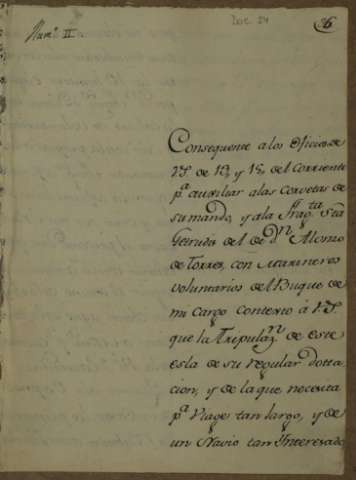 Num.º II.
Doc. 24
36
Consequente a los Oficios de
V.S. de 12, y 15, del corriente
p.ª auxiliar a las Corvetas de
su mando, y a la Frag.ta Sta
Getrudis del de Dn Alonso
de Torres, con Marineros
voluntarios del Buque de
mi cargo contexto á V.S.
que la Tripulaz.n de este
es la de su regular dotta
cion, y de la que necesita
p.ª Viage tan largo, y de
un Navio tan Interesado